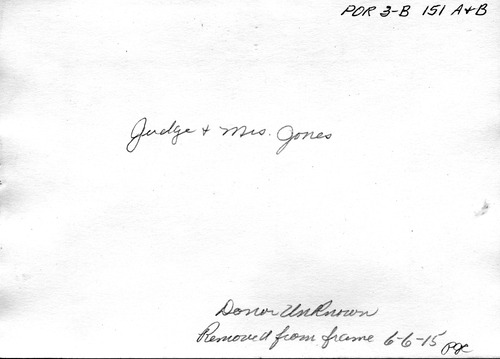 POR 3-B 151 A+B
Judge + Mrs. Jones
Donor Unknown
Removed from frame 6-6-15